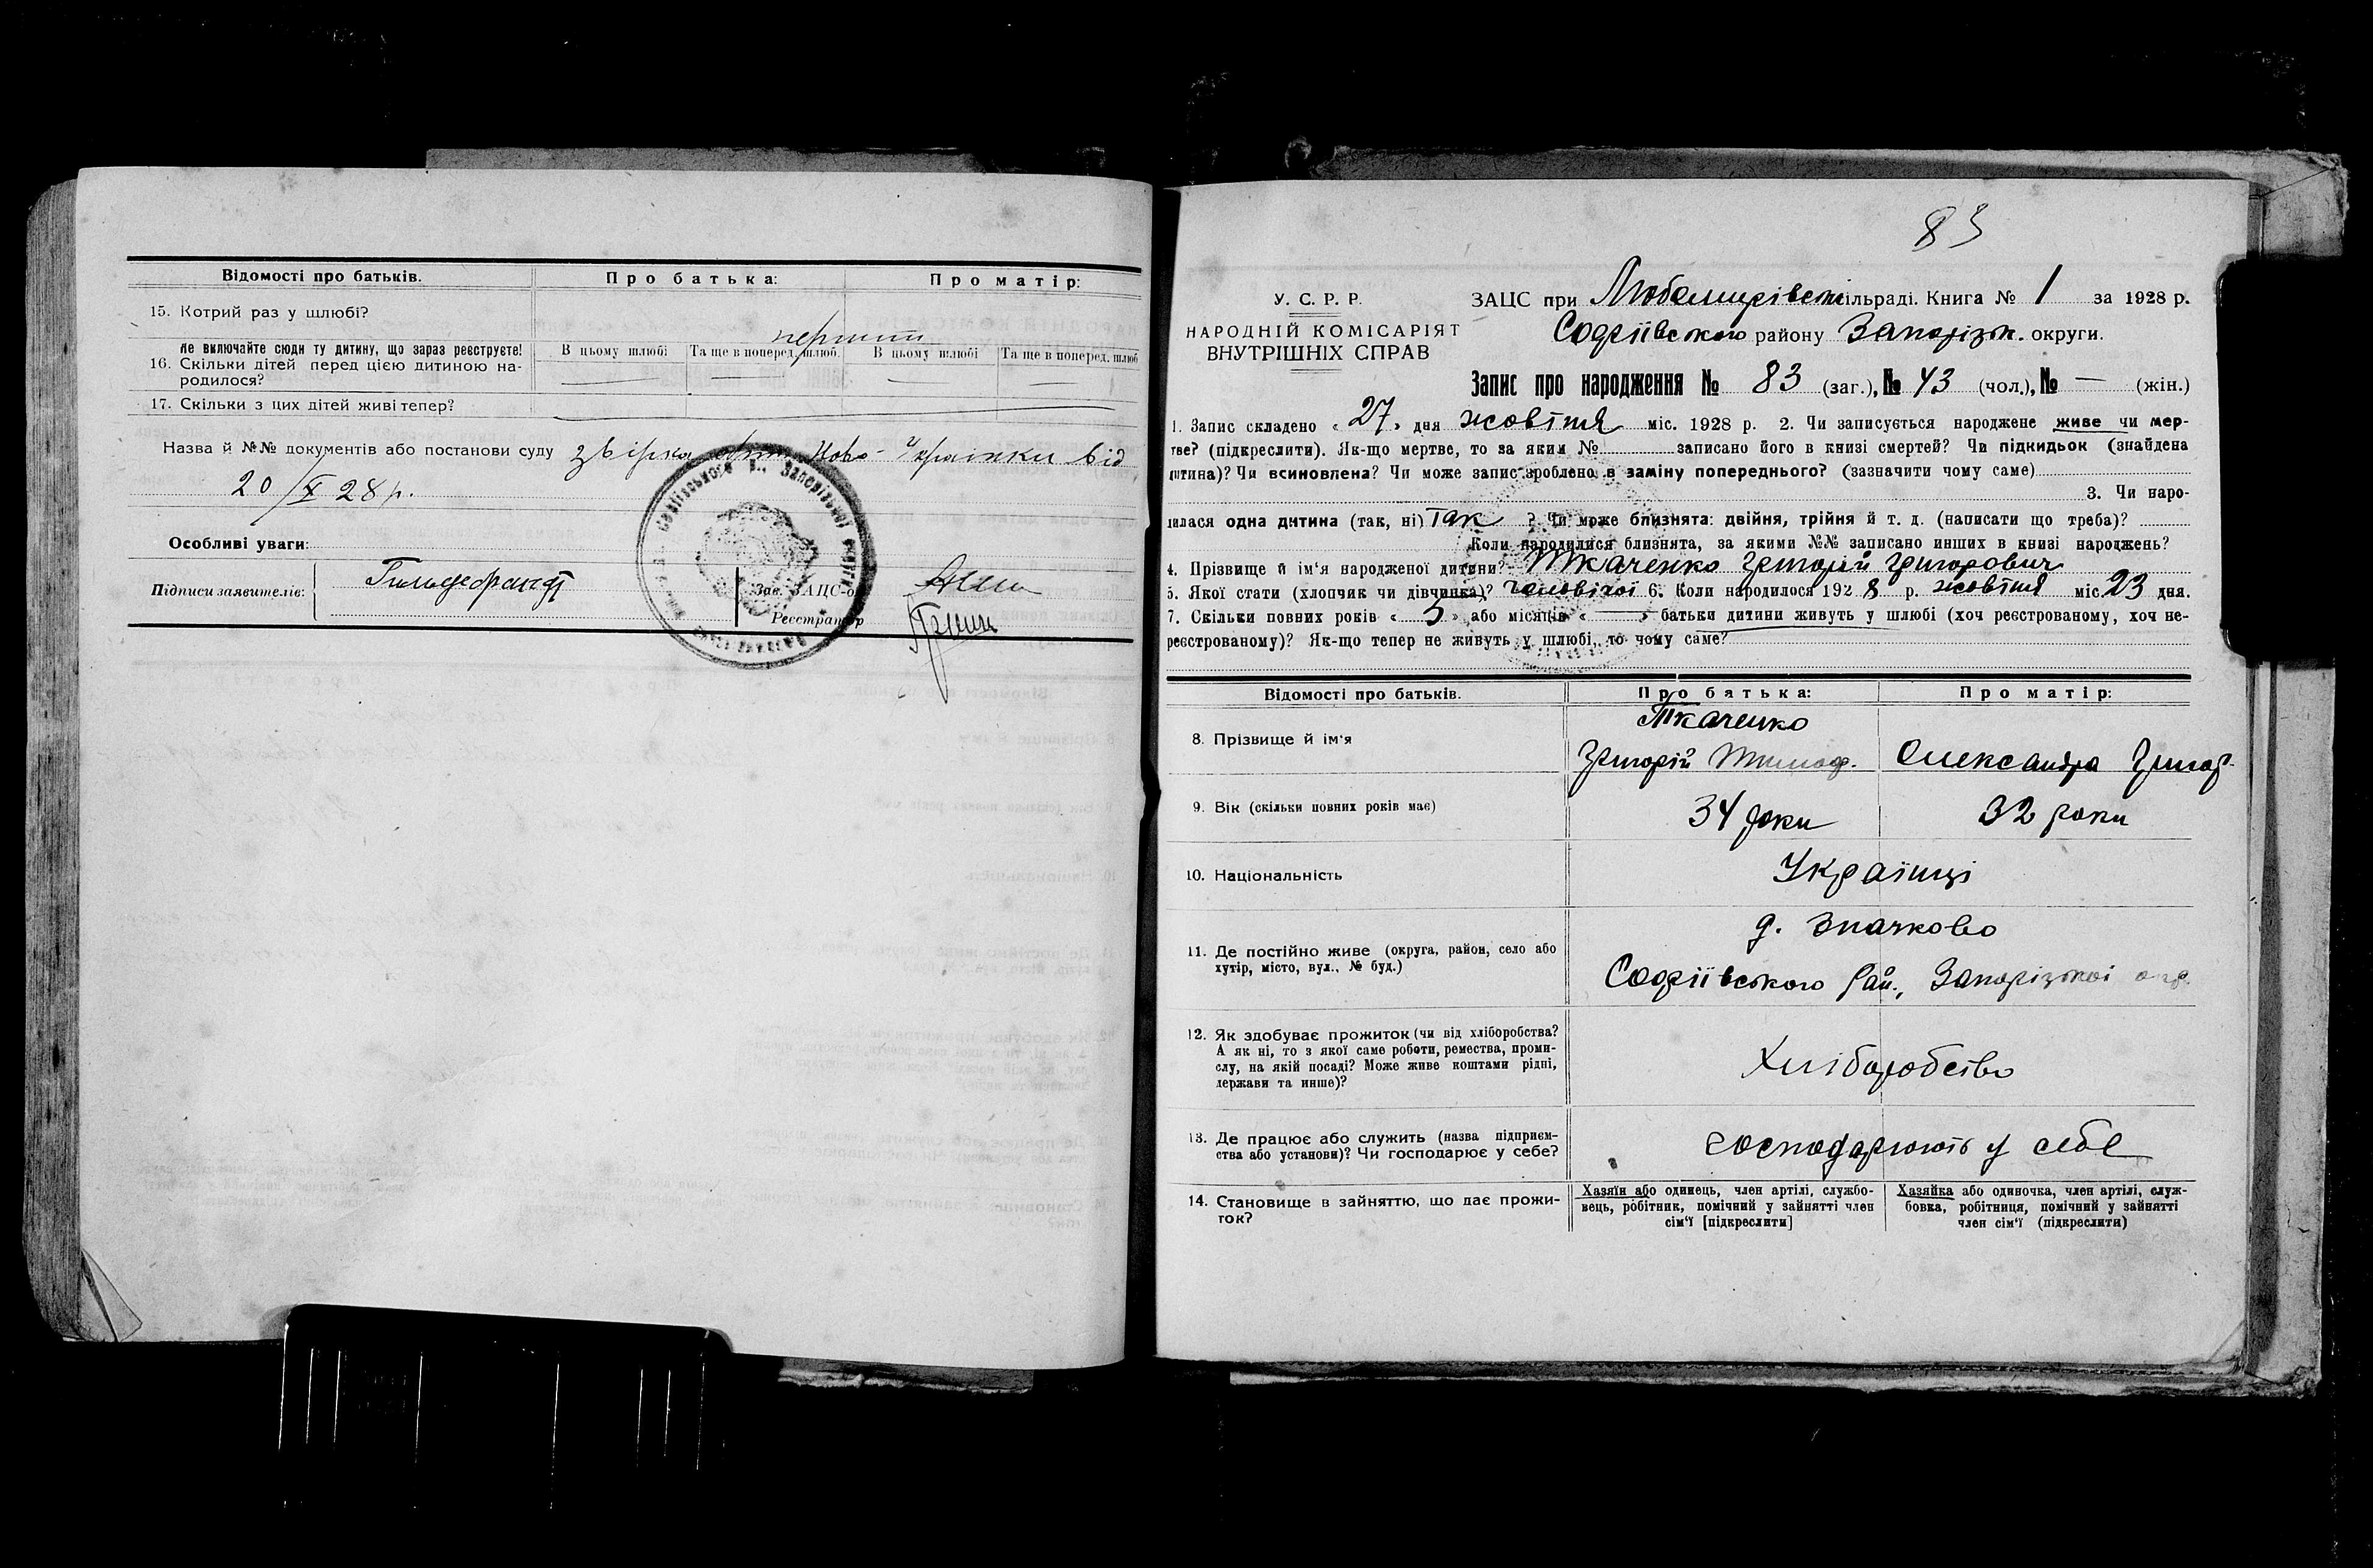 Відомості про батьків.
Про батька:
Про матір:
15. Котрий раз у шлюбі?
перший
Не включайте сюди ту дитину, що зараз реєструєте!
16. Скільки дітей перед цією дитиною на-
родилося?
В цьому шлюбі
Та ще в поперед. шлюб.
В цьому шлюбі
Та ще в поперед. шлюб
— — — —
17. Скільки з цих дітей живі тепер?
Назва й №№ документів або постанови суду Ново-Українки від
20/X 28 р.
Особливі уваги:
Підписи заявителів:
Зав. ЗАЦС-о
Реєстратор
83
У. С. Р. Р.
НАРОДНІЙ КОМІСАРІЯТ
ВНУТРІШНІХ СПРАВ
ЗАЦС при Любомирівськ ільраді. Книга № 1 за 1928 р.
Софіївського району Запорізьк. округи.
Запис про народження № 83 (заг.), № 43 (чол.), № — (жін.)
1. Запис складено «27» дня жовтня міс. 1928 р. 2. Чи записується народжене живе чи мер-
тве? (підкреслити). Як-що мертве, то за яким № записано його в книзі смертей? Чи підкидьок (знайдена
дитина)? Чи всиновлена? Чи може запис зроблено в заміну попереднього? (зазначити чому саме)
3. Чи наро-
дилася одна дитина (так, ні) Так ? Чи може близнята: двійня, трійня й т. д. (написати що треба)?
Коли народилися близнята, за якими №№ записано инших в книзі народжень?
4. Прізвище й ім'я народженої дитини? Ткаченко Григорій Григорович
5. Якої стати (хлопчик чи дівчинка)? чоловічої 6. Коли народилося 1928 р. жовтня міс 23 дня.
7. Скільки повних років «5» або місяців «—» батьки дитини живуть у шлюбі (хоч реєстрованому, хоч не-
реєстрованому)? Як-що тепер не живуть у шлюбі, то чому саме?
Відомості про батьків.
Про батька:
Про матір:
8. Прізвище й ім'я
Ткаченко
Григорій Тимоф.
Олександра Григор.
9. Вік (скільки повних років має)
34 роки
32 роки
10. Національність
Українці
11. Де постійно живе (округа, район, село або
хутір, місто, вул., № буд.)
д. Значково
Софіївського Рай., Запорізької окр.
12. Як здобуває прожиток (чи від хліборобства?
А як ні, то з якої саме роботи, ремества, проми-
слу, на якій посаді? Може живе коштами рідні,
держави та инше)?
Хліборобство
13. Де працює або служить (назва підприєм-
ства або установи)? Чи господарює у себе?
господарюють у себе
14. Становище в зайняттю, що дає прожи-
ток?
Хазяїн або одинець, член артілі, службо-
вець, робітник, помічний у зайнятті член
сім'ї [підкреслити]
Хазяйка або одиночка, член артілі, служ-
бовка, робітниця, помічний у зайнятті
член сім'ї (підкреслити)